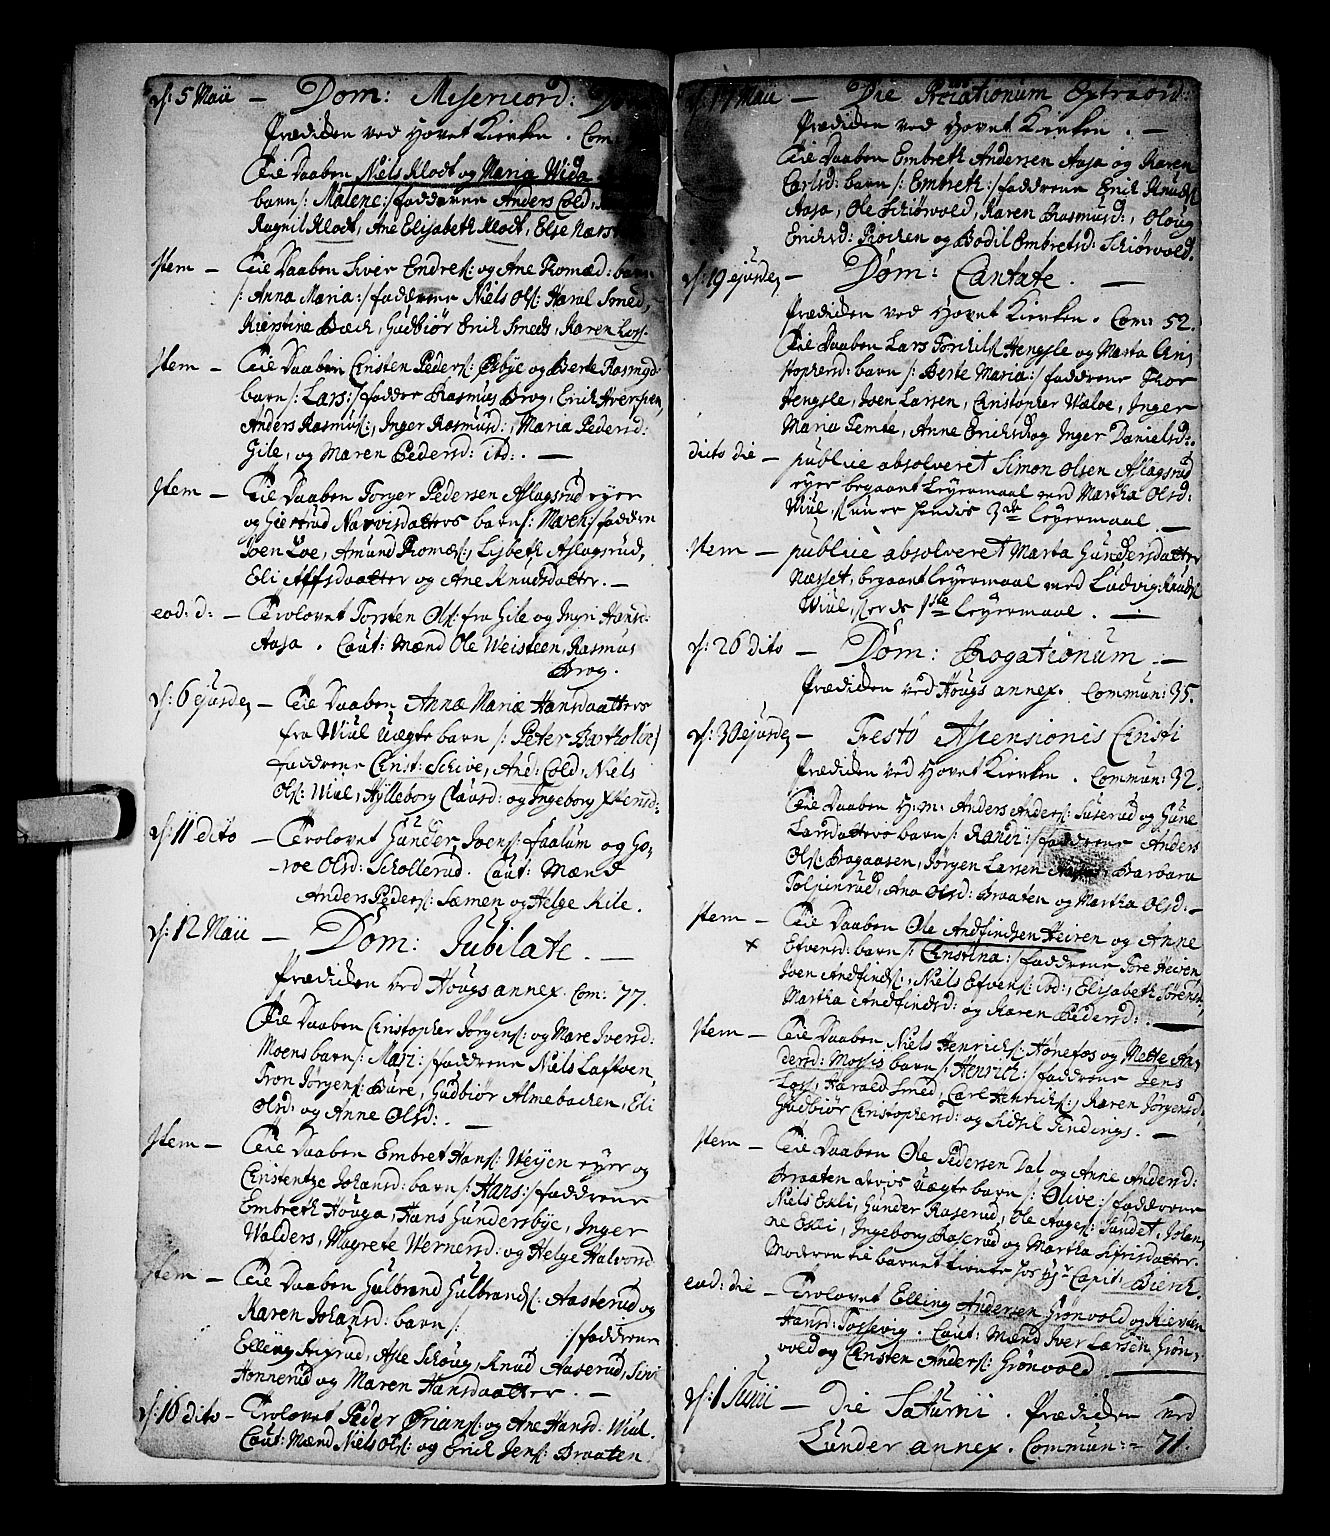 d: 5 Maii — Dom: Misericord:
Prædiken ved Hovet Kirken. Com:
Till Daaben Niels Klodt og Maria Wida
barn /: Malene :/ faddrene Anders Cold,
Ragnil Klodt, Ane Elisabeth Klodt, Else
Item — Till Daaben Siver Endres: og Ane Tomæd: barn
/: Anna Maria :/ faddrene Niels Ols: Haral Smed,
Kierstine Bæck, Gudbiør Erich Smeds, Karen Loss.
Item — Till Daaben Christen Peders: Bye og Berte Rasmusd:
barn /: Lars :/ fadder Rasmus Brog, Erich Iversen,
Anders Rasmus:, Inger Rasmusd:, Maria Pedersd:
Gile, og Maren Pedersd: itd: . —
Item — Till Daaben Torger Pedersen Aslagsrud eyer
og Giertrud Narvesdatters barn /: Maren :/ faddrene
Joen Loe, Amund Tomæs:, Lisbeth Aslagsrud,
Eli Alfsdaatter og Ane Knudsdatter. —
eod: d: — Trolovet Torsten Ols: fra Gile og Ingri Hansd:
Aasa. Caut: Mænd Ole Weisteen, Rasmus
Brog.
d: 6 ejusdem — Till Daaben Anne Maria Hansdaatters
fra Wiul Uægte barn /: Peter Bartholoe :/
faddrene Christ: Schive, And: Cold, Niels
Ols: Wiul, Hylleborg Clausd: og Ingeborg Iversd:
d: 11 dito — Trolovet Gunder Joens: Faalum og Go-
roe Olsd: Schollerud. Caut: Mænd
Anders Peders: Semen og Helge Kile.
d: 12 Maii — Dom: Jubilate. —
Prædiken ved Hougs annex. Com: 77.
Till Daaben Christopher Jørgens: og Mare Iversd:
Moens barn /: Mari :/ faddrene Niels Laftven,
Tron Jørgens: Bure, Gudbiør Almebacken, Eli
Olsd: og Anne Olsd: . —
Item — Till Daaben Embret Hans: Weyen eyer og
Christentze Johansd: barn /: Hans :/ faddrene
Embreth Houga, Hans Gundersbye, Inger
Walders, Magrete Wernersd: og Helge Halvorsd
Item — Till Daaben Gulbrand Gulbrands: Aasterud og
Karen Johansd: barn /: :/ faddrene
Elling Rigrud, Asle Schoug, Knud Aaserud, Siri
Honnerud og Maren Hansdaatter. —
d: 16 dito — Trolovet Peder Brians: og Ane Hansd: Wiul.
Caut: Mænd Niels Ols: og Erich Jens: Braaten
d: 17 Maii — Die Rogationum Extraord:
Prædiken ved Hovet Kirken. —
Till Daaben Embreth Andersen Aasa og Karen
Carlsd: barn /: Embreth :/ faddrene Erich Knuds:
Aasa, Ole Schiørvold, Karen Rasmusd:, Oloug
Erichsd: Rocken og Bodil Embretsd: Schiørvold.
d: 19 ejusdem — Dom: Cantate. —
Prædiken ved Hovet Kirken. Com: 52.
Till Daaben Lars Torkils: Hengsle og Marta Chri-
stophersd: barn /: Berte Maria :/ faddrene Thor
Hengsle, Joen Larsen, Christopher Wæloe, Inger
Maria Temte, Anne Erichsd og Inger Danielsd: .
dito die — publice absolveret Simon Olsen Aslagsrud
eyer begaaet Leyermaal med Martha Olsd:
Wiul, er hendis 3de Leyermaal. —
Item — publice absolveret Marta Gundersdaatter
Næsset, begaaet Leyermaal med Ludvig Knuds:
Wiul, er de 1ste Leyermaal. —
d: 26 dito — Dom: Rogationum. —
Prædiken ved Hougs annex. Commun: 35.
d: 30 ejusdem — Festo Ascensionis Christi
Prædiken ved Hovet Kirken. Commun: 32.
Till Daaben H: m: Anders Anders: Suserud og Gune
Larsdatters barn /: Kari :/ faddrene Anders
Ols: Bagaasen, Jørgen Larsen Barbara
Tolpinrud, Ana Olsd: Braaten og Martha Olsd: —
Item — Till Daaben Ole Andfindsen Heiren og Anne
x Efvensd: barn /: Christina :/ faddrene Tore Heiren
Iven Andfinds:, Niels Efvens: ibd:, Elisabeth Sørensd
Martha Andfindsd: og Karen Pedersd: . —
Item — Till Daaben Niels Henrichs: Hønefos og Mette An-
dersd: Mossis barn /: Henrich :/ faddrene Jens
Loss, Harald Smed, Carl Henrichs:, Karen Jørgensd,
Gudbiør Christophersd: og Sidsel Findings. —
Item — Till Daaben Ole Pedersen Dal og Anne Andersd:
Braaten deris uægte barn /: Olive :/ faddrene
Niels Ekli, Gunder Raserud, Ole Aages: Sundet, Johan-
ne Ekli, Ingeborg Raserud og Martha Sifrisdatter.
Moderen til barnet tiente hos Hr Capit: Bierch.
eod: die — Trolovet Elling Andersen Grønvold og Kiersten
Hansd: Tossevig. Caut: Mænd Iver Larsen Grøn-
vold og Christen Anders: Grønvold. —
d: 1 Junii — Die Saturni. Prædiken ved
Lunder annex. Commun: 71.